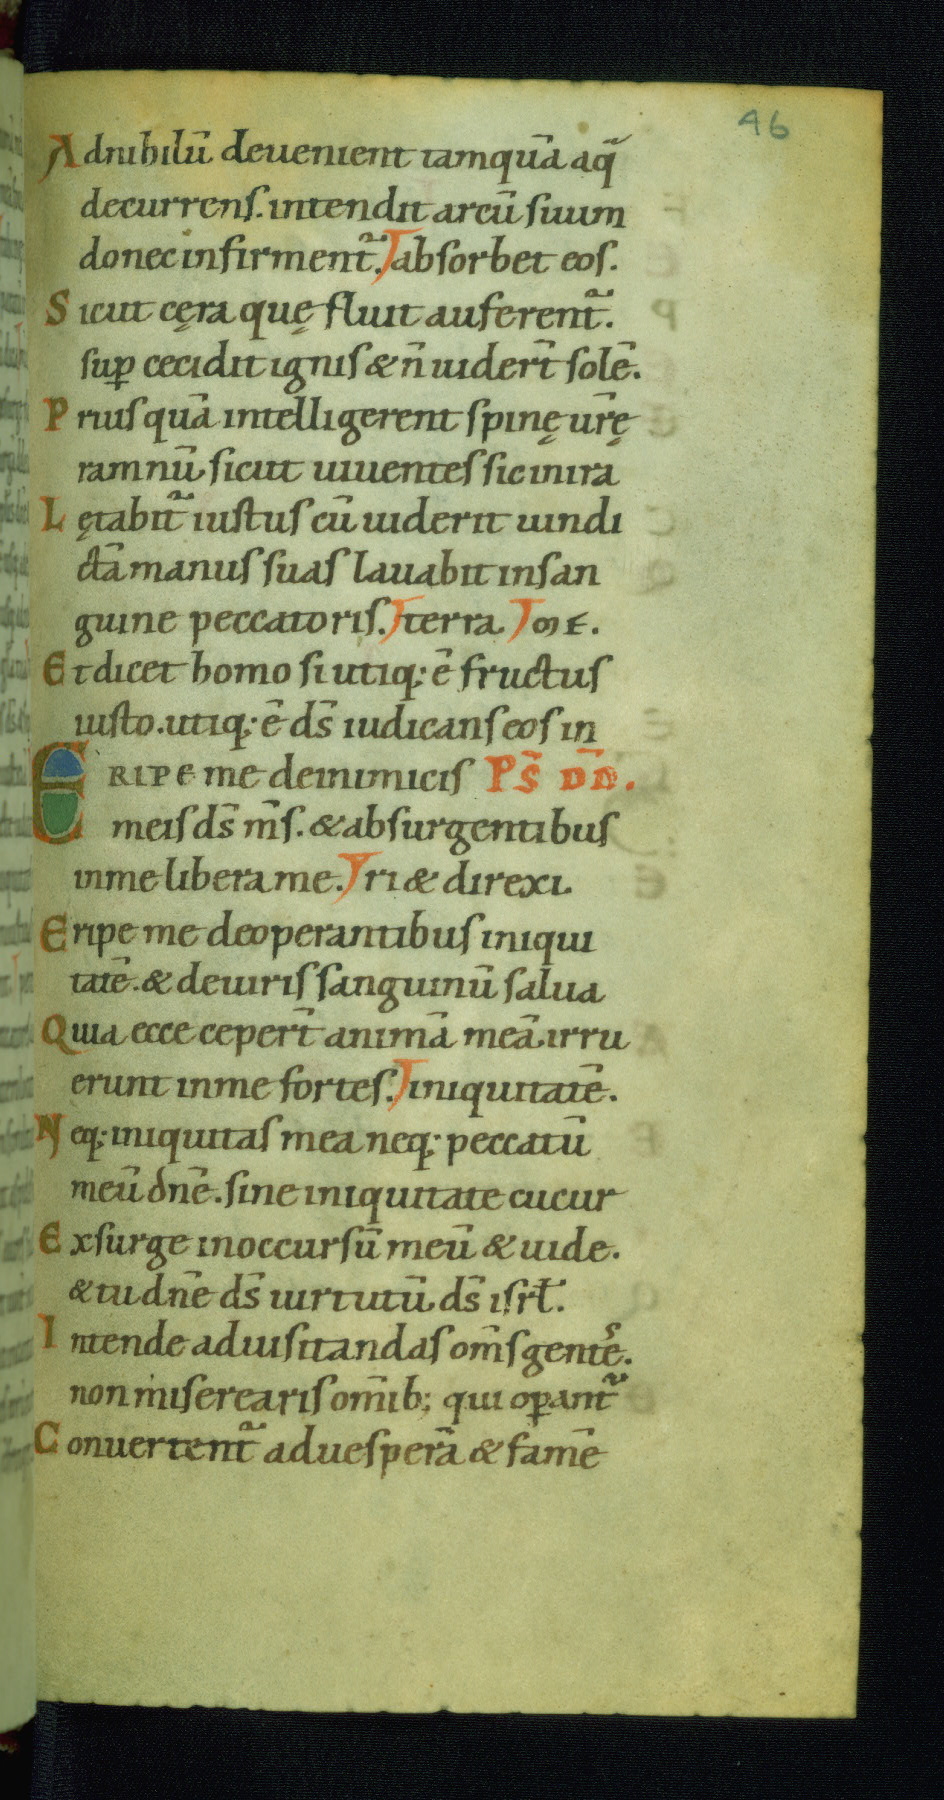 46
Adnihilũ deuenient tamquã aq̃
decurrens. intendit arcũ suum
donec infirment᷑. absorbet eos.
Sicut cęra quę fluit auferent᷑.
sup̱ cecidit ignis & ñ uider̃t solẽ.
Priusquã intelligerent spinę ur̃ę
ramnũ sicut uiuentes sic inira
Lętabit᷑ iustus cũ uiderit uindi
ctã manus suas lauabit insan
guine peccatoris. terra. om̅e.
Et dicet homo si utiq; ẽ fructus
iusto. utiq; ẽ ds̃ iudicans eos in
ERIPE me deinimicis Ps̃ DD̃.
meis ds̃ m̃s. & absurgentibus
inme libera me. ri & direxi.
Eripe me deoperantibus iniqui
tatẽ. & deuiris sanguinũ salua
Quia ecce ceper̃t animã meã. irru
erunt inme fortes. iniquitatẽ.
Neq; iniquitas mea neq; peccatũ
meũ dñe. sine iniquitate cucur
Exsurge inoccursũ meũ & uide.
& tu dñe ds̃ uirtutũ ds̃ isrł.
Intende aduisitandas om̃s gentẽˢ.
non miserearis om̃ib; qui op̱ant᷑
Conuertent᷑ aduesperã & famẽ